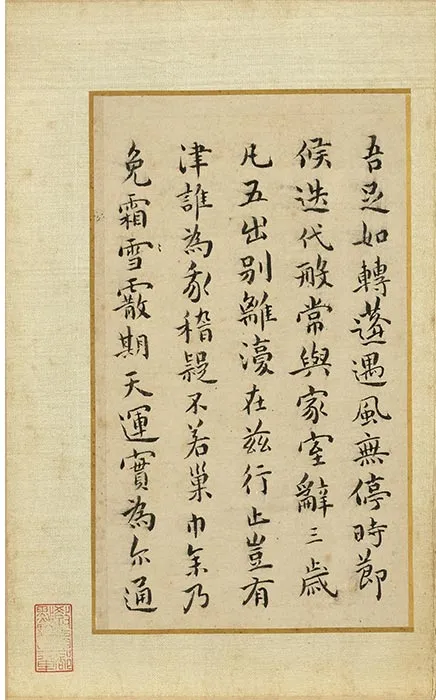 吾足如轉蓬遇風無停時節
候迭代般常與家室辭三歲
凡五出別離濅在茲行止豈有
津誰為我稽疑不若巢中禽乃
免霜雪霰期天運實為尔通